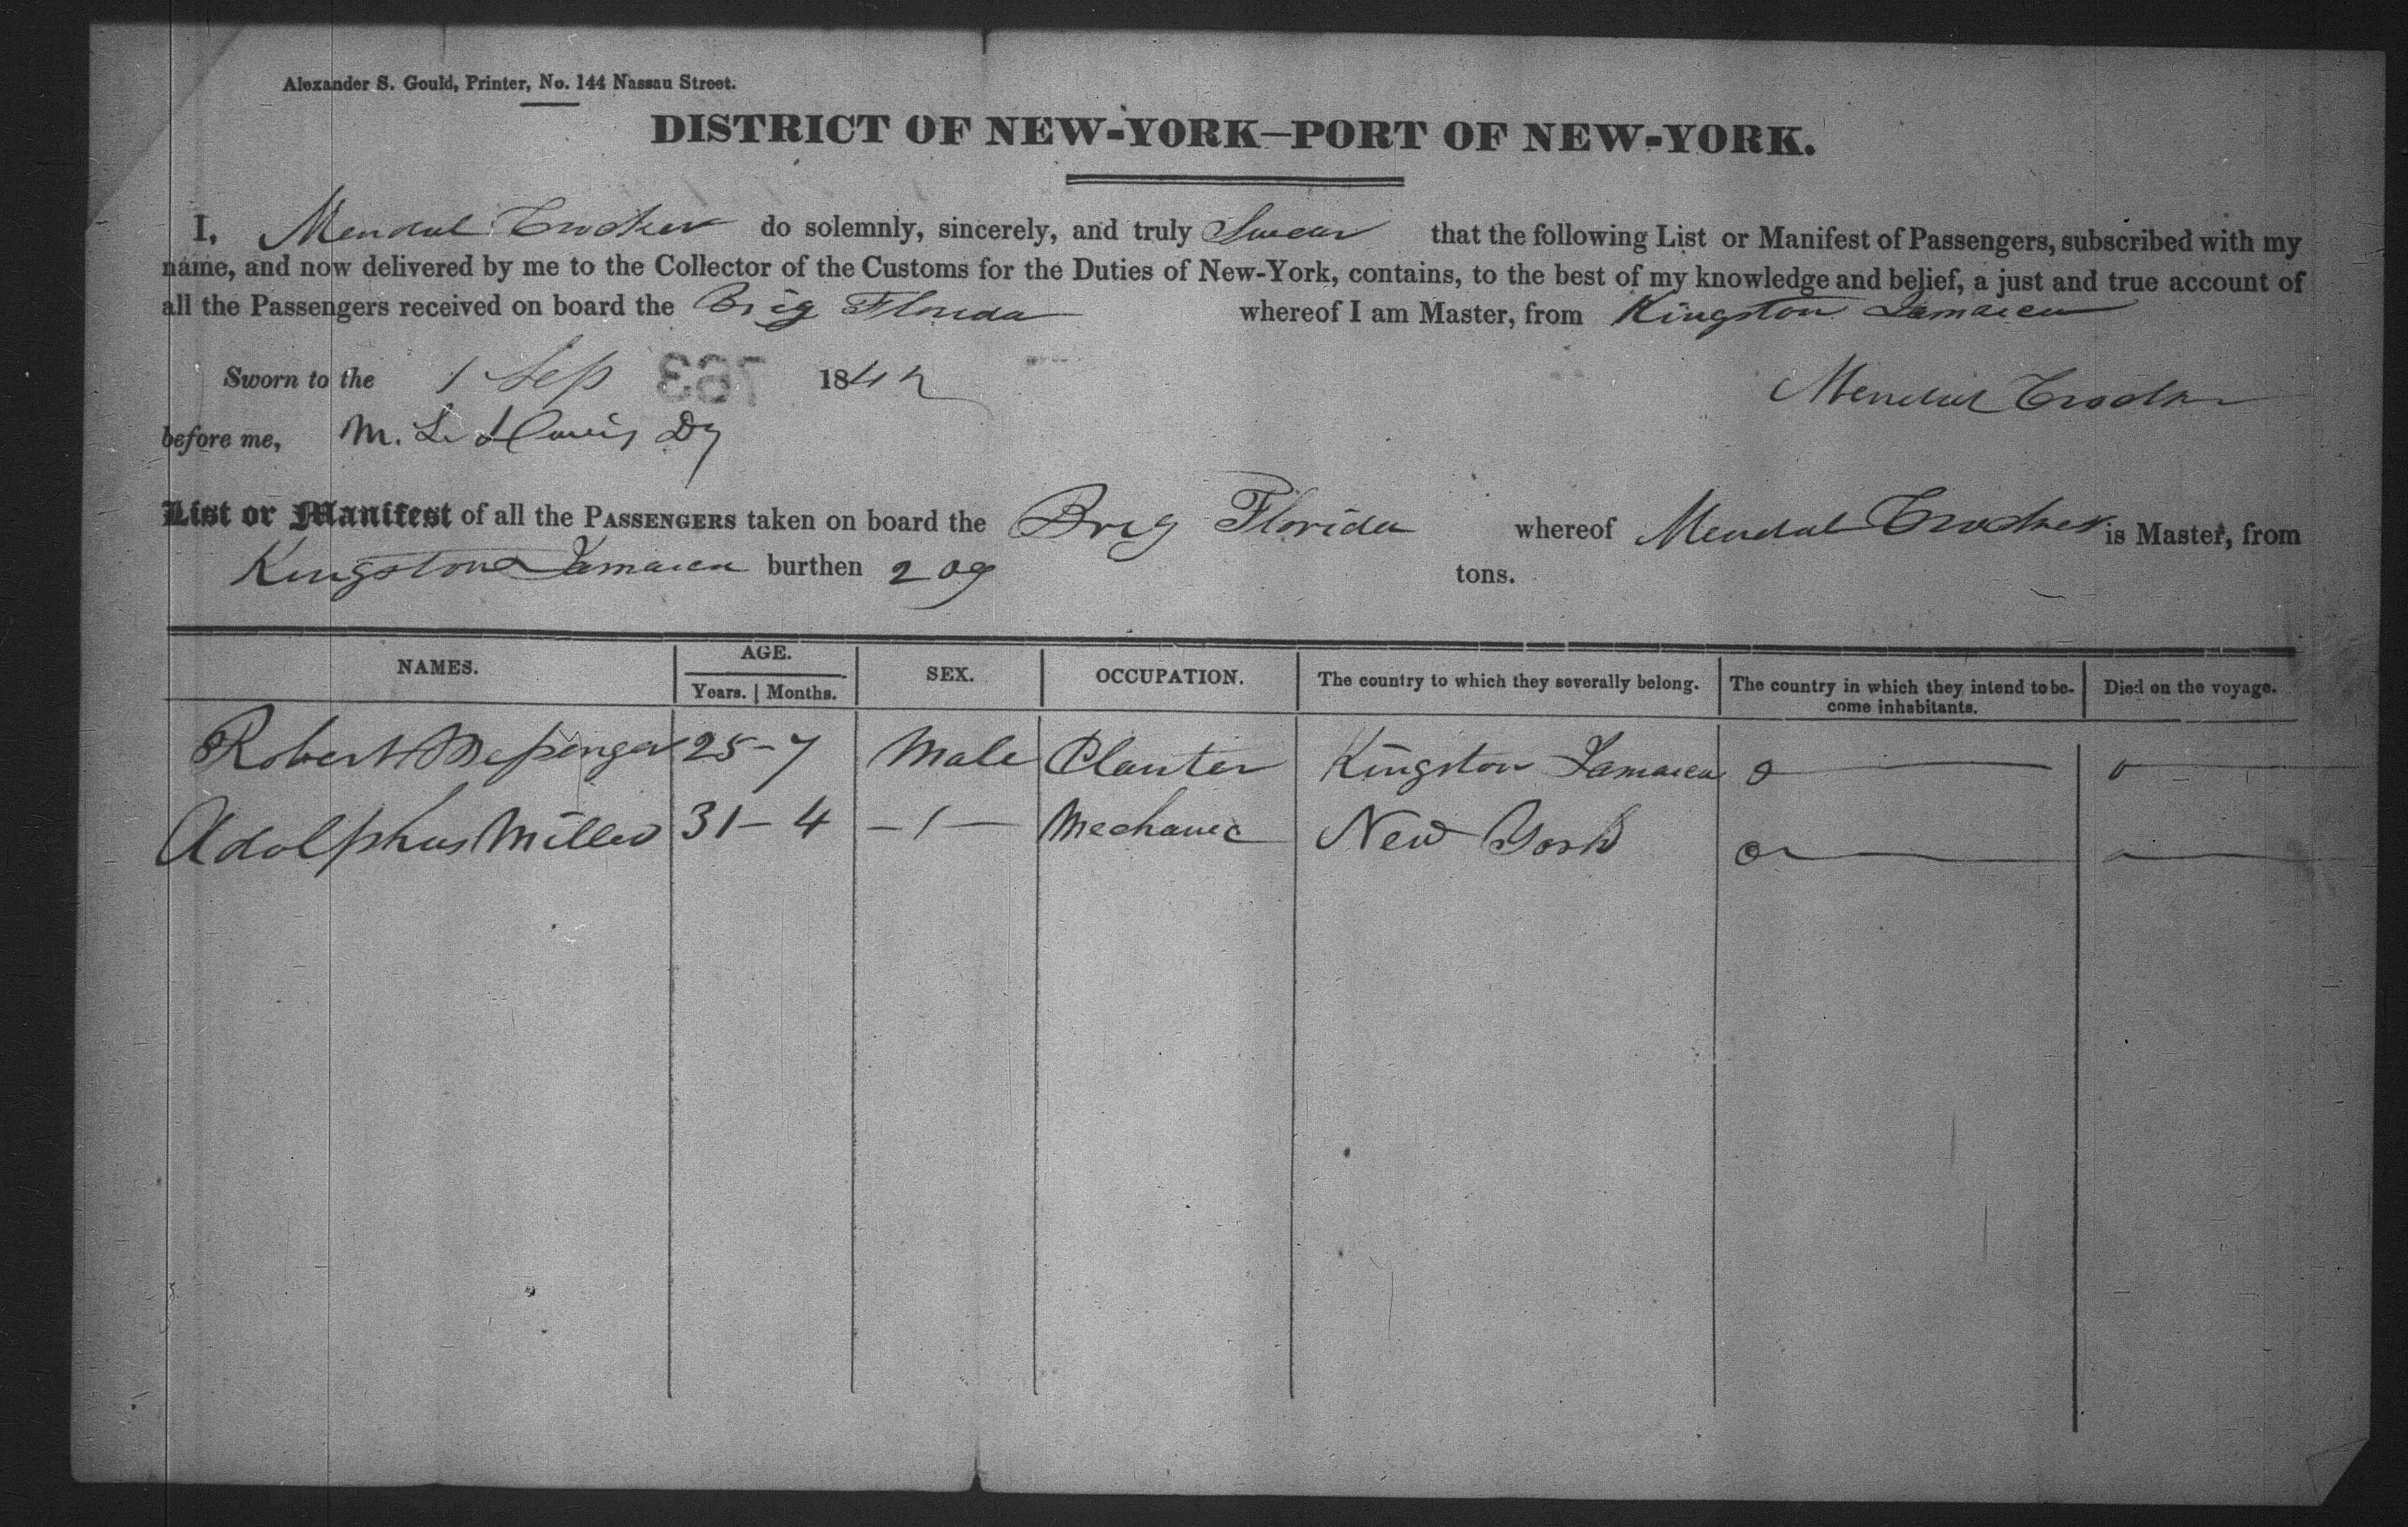 Alexander S. Gould, Printer, No. 144 Nassau Street.
DISTRICT OF NEW-YORK—PORT OF NEW-YORK.
I, Mendal Crocker do solemnly, sincerely, and truly Swear that the following List or Manifest of Passengers, subscribed with my
name, and now delivered by me to the Collector of the Customs for the Duties of New-York, contains, to the best of my knowledge and belief, a just and true account of
all the Passengers received on board the Brig Florida whereof I am Master, from Kingston Jamaica
Sworn to the 1 Sep 1842
Mendal Crocker
before me, M. L. Davis Dy
List or Manifest of all the PASSENGERS taken on board the Brig Florida whereof Mendal Crocker is Master, from
Kingston Jamaica burthen 209 tons.
NAMES. AGE. Years. | Months. SEX. OCCUPATION. The country to which they severally belong. The country in which they intend to be-come inhabitants. Died on the voyage.
Robert 25-7 Male Planter Kingston Jamaica
Adolphus Miller 31-4 Mechanic New York